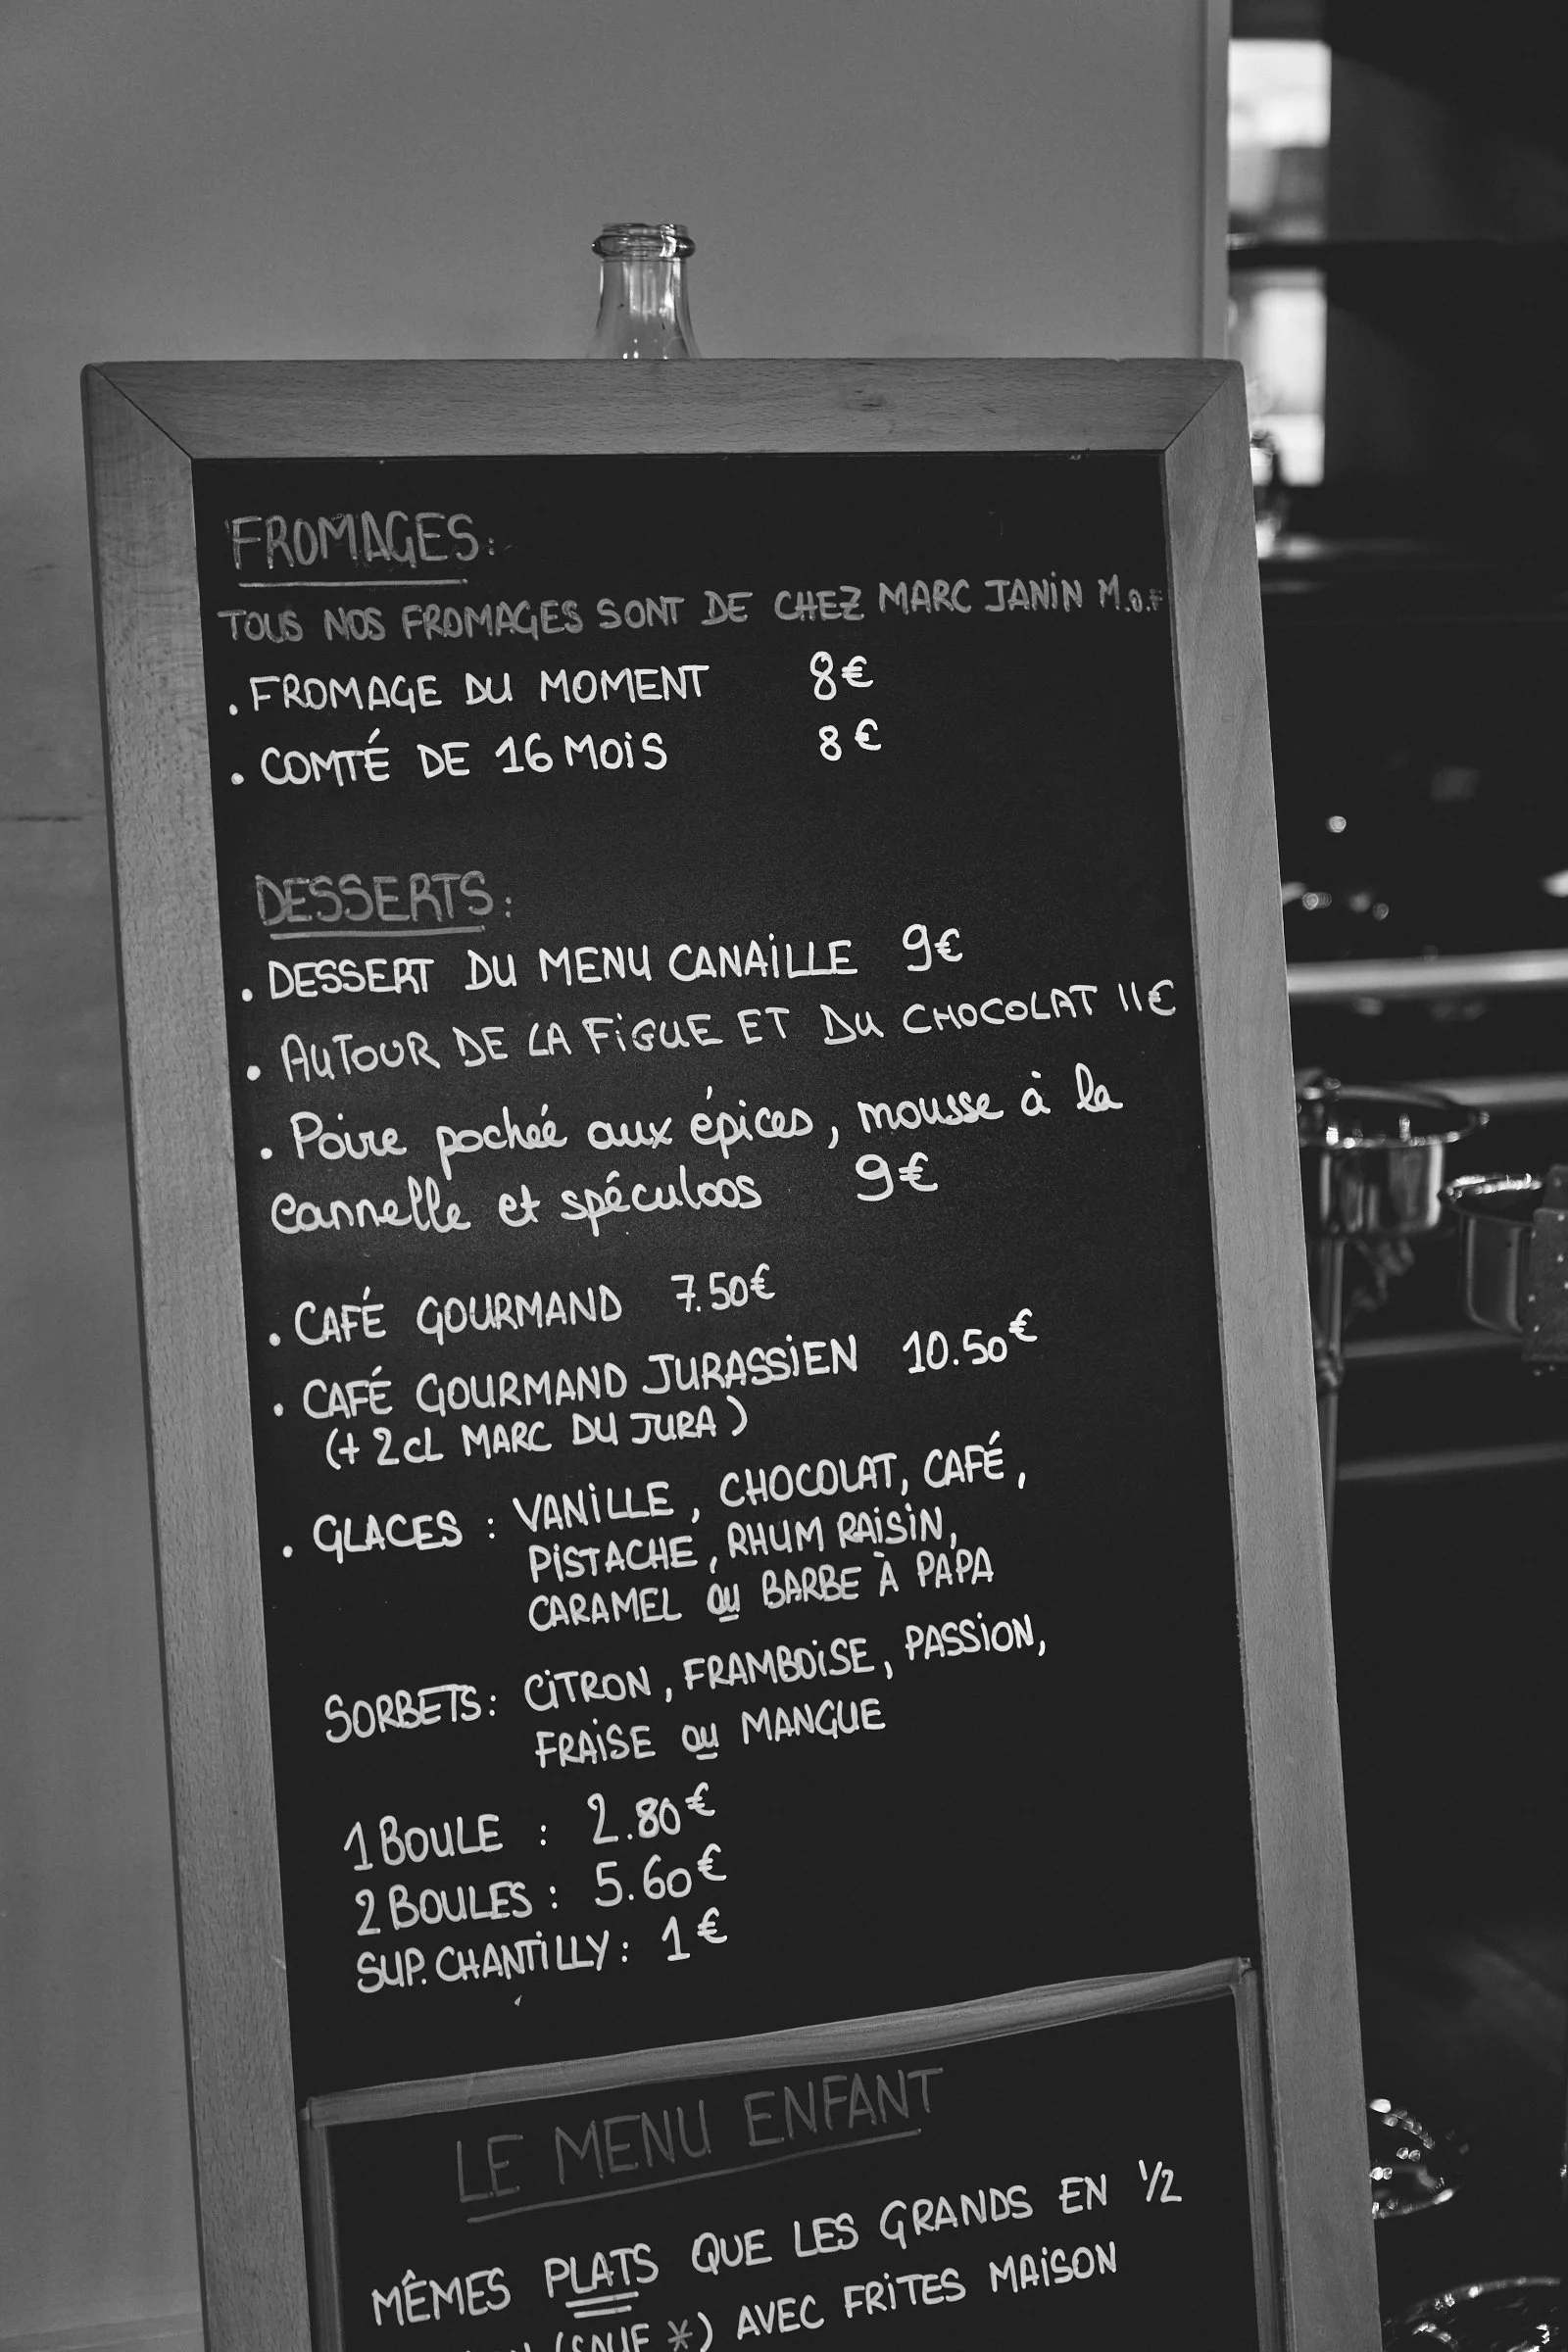 FROMAGES:
TOUS NOS FROMAGES SONT DE CHEZ MARC JANIN M.O.F
. FROMAGE DU MOMENT 8€
. COMTÉ DE 16 MOIS 8€
DESSERTS:
. DESSERT DU MENU CANAILLE 9€
. AUTOUR DE LA FIGUE ET DU CHOCOLAT 11€
. Poire pochée aux épices, mousse à la
cannelle et spéculoos 9€
. CAFÉ GOURMAND 7.50€
. CAFÉ GOURMAND JURASSIEN 10.50€
(+ 2cL MARC DU JURA)
. GLACES : VANILLE, CHOCOLAT, CAFÉ,
PISTACHE, RHUM RAISIN,
CARAMEL OU BARBE À PAPA
SORBETS: CITRON, FRAMBOISE, PASSION,
FRAISE OU MANGUE
1 BOULE : 2.80€
2 BOULES : 5.60€
SUP. CHANTILLY : 1€
LE MENU ENFANT
MÊMES PLATS QUE LES GRANDS EN 1/2
(SAUF *) AVEC FRITES MAISON